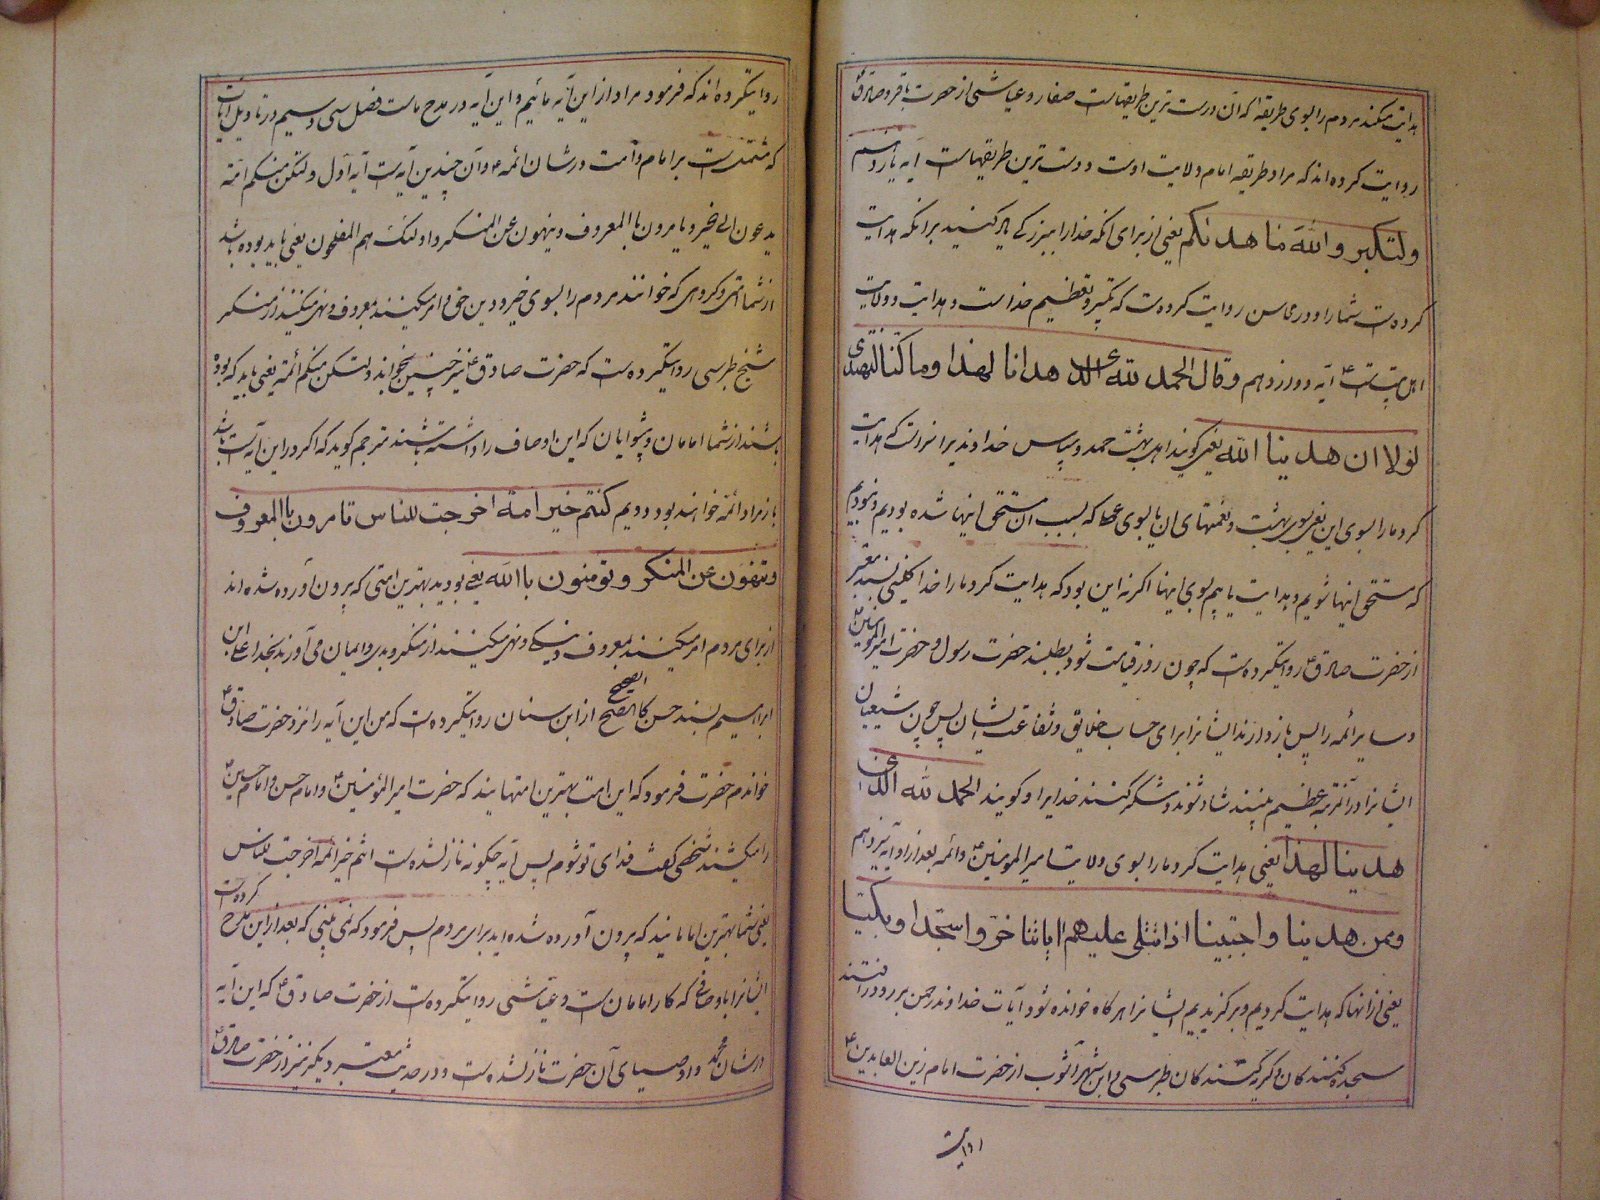 هدایت میکند مردم را بسوی طریقه که آن درست ترین طریقهاست صفار و عیاشی از حضرت باقر و صادق ع
روایت کرده اند که مراد طریقه امام و ولایت اوست و درست ترین طریقهاست آیه یازدهم
ولتکبر والله ما هدیکم یعنی از برای آنکه خدا را ببزرگی یاد کنید بر آنکه هدایت
کرده است شما را و در محاسن روایت کرده است که تکبیر و تعظیم خداست و هدایت و ولایت
اهل بیت است ع آیه دوازدهم وقال الحمد لله الذی هدانا لهذا وما کنا لنهتدی
لولا ان هدینا الله یعنی گویند اهل بهشت حمد و سپاس خداوندیرا سزاست که هدایت
کرد ما را بسوی این یعنی بسوی بهشت و نعمتهای آن یا بسوی عملها که بسبب آن مستحق اینها شده بودیم و نبودیم
که مستحق اینها شویم و هدایت یابیم بسوی اینها اگر نه این بود که هدایت کرد ما را خدا کلینی بسند معتبر
از حضرت صادق ع روایتکرده است که چون روز قیامت شود بطلبند حضرت رسول و حضرت امیر المؤمنین ع
و سایر ائمه را پس باز دارند ایشانرا برای حساب خلایق و شفاعت ایشان پس چون شیعیان
ایشانرا در آنمرتبه عظیم بینند شاد شوند و شکر کنند خدایرا و گویند الحمد لله الذی
هدینا لهذا یعنی هدایت کرد ما را بسوی ولایت امیر المؤمنین ع و ائمه بعد از او آیه سیزدهم
وممن هدینا واجتبینا اذا تتلی علیهم ایاتنا خروا سجدا وبکیا
یعنی از آنها که هدایت کردیم و برگزیدیم ایشانرا هر گاه خوانده شود آیات خداوند رحمن بر رو در افتند
سجده کنندگان و گریه کنندگان طبرسی و ابن شهر آشوب از حضرت امام زین العابدین ع
روایتکرده اند که فرمود مراد از این آیه مائیم و این آیه در مدح ماست فصل سی و سیم در تاویل آیات
که مشتمل است بر امام و امت در شان ائمه ع و آن چندین آیه ست آیه اول ولتکن منکم ائمة
یدعون الی خیر و یامرون باالمعروف وینهون عن المنکر واولئک هم المفلحون یعنی باید بوده باشد
از شما امتی و گروهی که خوانند مردم را بسوی خیر و دین حق و امر میکنند بمعروف و نهی میکنند از منکر
شیخ طبرسی روایتکرده ست که حضرت صادق ع نیز چنین میخواند ولتکن منکم ائمة یعنی باید که بوده
باشند از شما امامان و پیشوایان که این اوصاف را داشته باشند مترجم گوید که اگر در این آیه امت باشد
باز مراد ائمه خواهند بود دویم کنتم خیر امة اخرجت للناس تامرون باالمعروف
وتنهون عن المنکر وتومنون باالله یعنی بودید بهترین امتی که بیرون آورده شده اند
از برای مردم امر میکنند بمعروف و نیکی و نهی میکنند از منکر و بدی و ایمان می آورند بخدا علی ابن
ابراهیم بسند حسن کالصحیح از ابن سنان روایتکرده ست که من این آیه را نزد حضرت صادق ع
خواندم حضرت فرمود که این امت بهترین امتهایند که حضرت امیر المؤمنین ع و امام حسن و امام حسین ع
را میکشند شخصی گفت فدای تو شوم پس آیه چگونه نازلشده ست انتم خیر ائمة اخرجت للناس
یعنی شما بهترین امامانید که بیرون آورده شده اید برای مردم پس فرمود که نمی بینی که بعد از این مدح کرده است
ایشانرا باوصافی که کار امامان ست و عیاشی روایتکرده ست از حضرت صادق ع که این آیه
در شان محمد و اوصیای آن حضرت نازلشده ست و در حدیث معتبر دیگر نیز از حضرت صادق ع